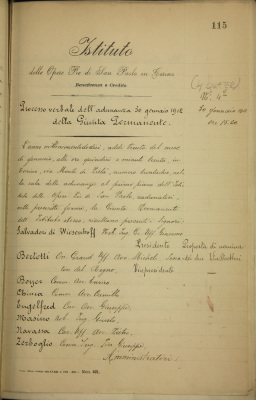 115
Istituto
delle Opere Pie di San Paolo in Torino
Beneficenza e Credito
N. 4
Processo verbale dell'adunanza 30 gennaio 1902
30 gennaio 1902
della Giunta Permanente.
ore 15.20
L'anno millenovecentodue, addì trenta del mese
di gennaio, alle ore quindici e minuti venti, in
Torino, via Monte di Pietà, numero trentadue, nel
la sala delle adunanze al primo piano dell'Isti
tuto delle Opere Pie di San Paolo, radunatasi,
nelle prescritte forme, la Giunta Permanente
dell'Istituto stesso, risultano presenti i Signori:
Salvadori di Wiesenhoff Nob. Ing. C. Uff. Giacomo
Presidente
Borlotti Cav. Grand. Uff. Avv. Michele Senatore
del Regno, Vicepresidente
Boyer Comm. Avv.
Chiesa Comm. Avv. Camillo
Engelfred Cav. Avv. Giuseppe
Masino Nob. Ing. Guido
Ravassa Cav. Uff. Avv. Pietro
Zerboglio Comm. Ing. Giuseppe
Amministratori.